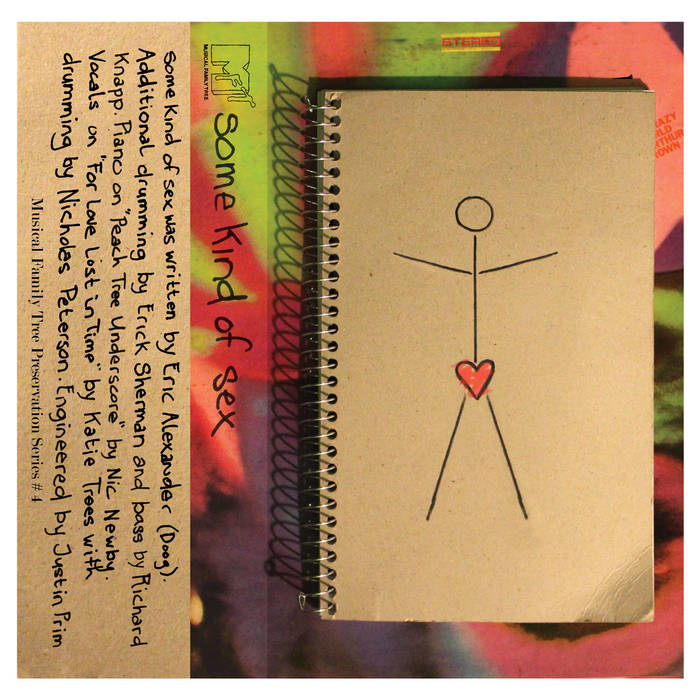 Some kind of sex was written by Eric Alexander (Doog).
Additional drumming by Erick Sherman and bass by Richard
Knapp. Piano on "Peach Tree Underscore" by Nic Newby.
Vocals on "For Love Lost in Time" by Katie Trees with
drumming by Nicholas Peterson. Engineered by Justin Prim
Musical Family Tree Preservation Series #4
MFT
MUSICAL FAMILY TREE
Some kind of sex
STEREO